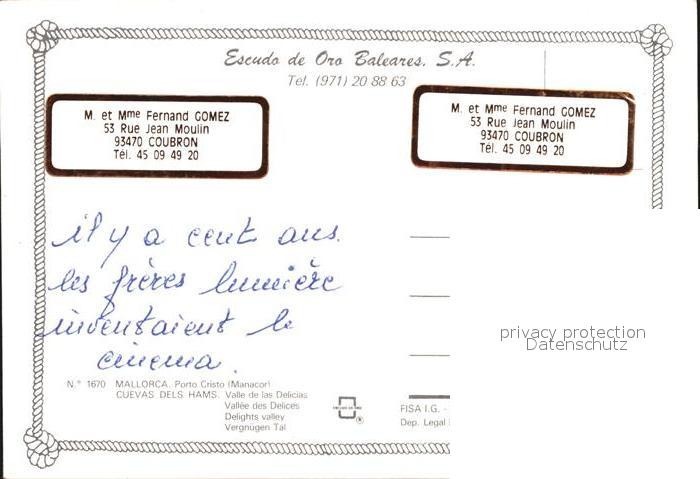 Escudo de Oro Baleares, S.A.
Tel. (971) 20 88 63
M. et Mme Fernand GOMEZ
53 Rue Jean Moulin
93470 COUBRON
Tél. 45 09 49 20
M. et Mme Fernand GOMEZ
53 Rue Jean Moulin
93470 COUBRON
Tél. 45 09 49 20
il y a cent ans.
les frères lumière
inventaient le
cinema.
privacy protection
Datenschutz
N.° 1670 MALLORCA. Porto Cristo (Manacor)
CUEVAS DELS HAMS. Valle de las Delicias
Vallée des Delices
Delights valley
Vergnügen Tal
ESCUDO DE ORO
FISA I.G. -
Dep. Legal